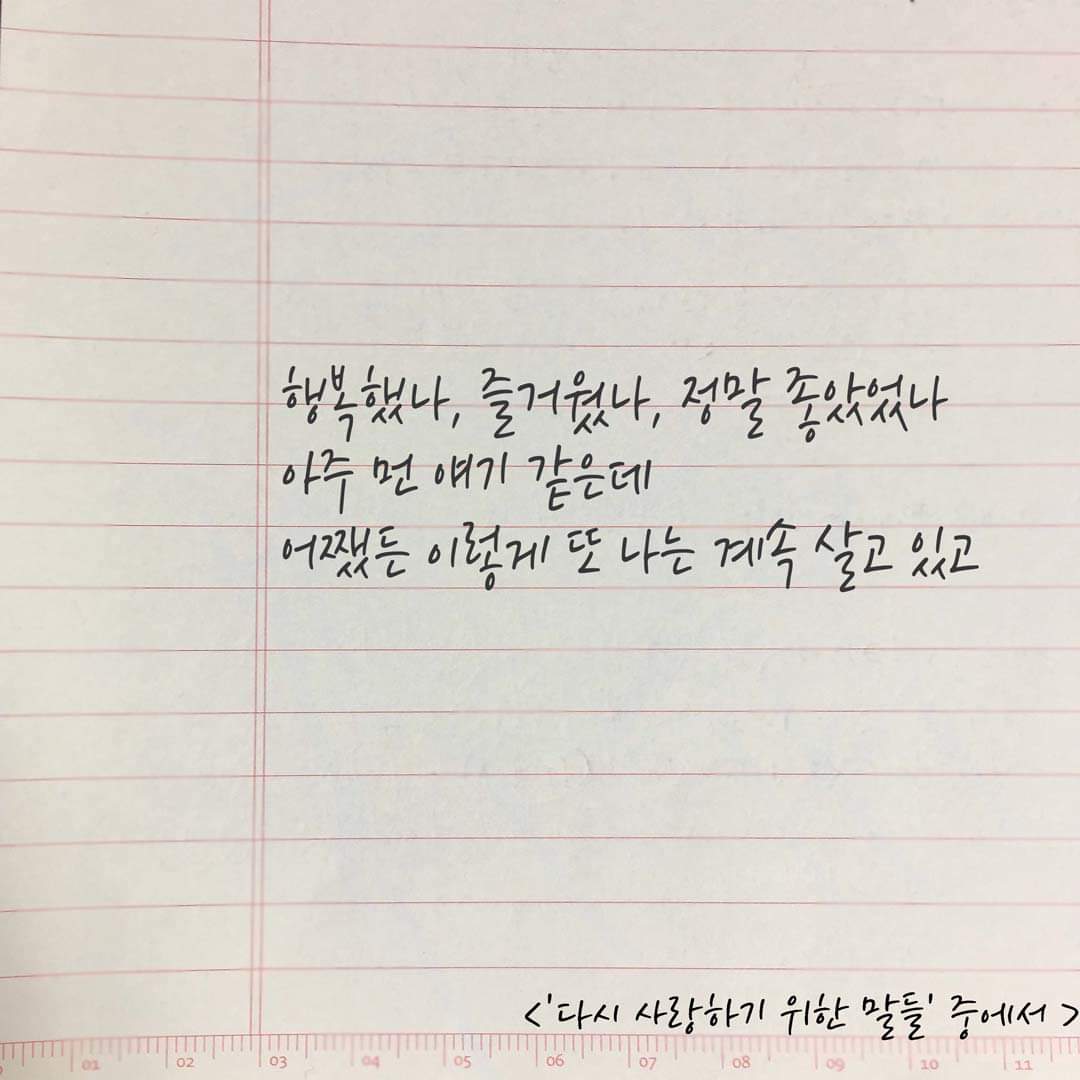 행복했나, 즐거웠나, 정말 좋았었나
아주 먼 얘기 같은데
어쨌든 이렇게 또 나는 계속 살고 있고
<'다시 사랑하기 위한 말들' 중에서 >
01 02 03 04 05 06 07 08 09 10 11